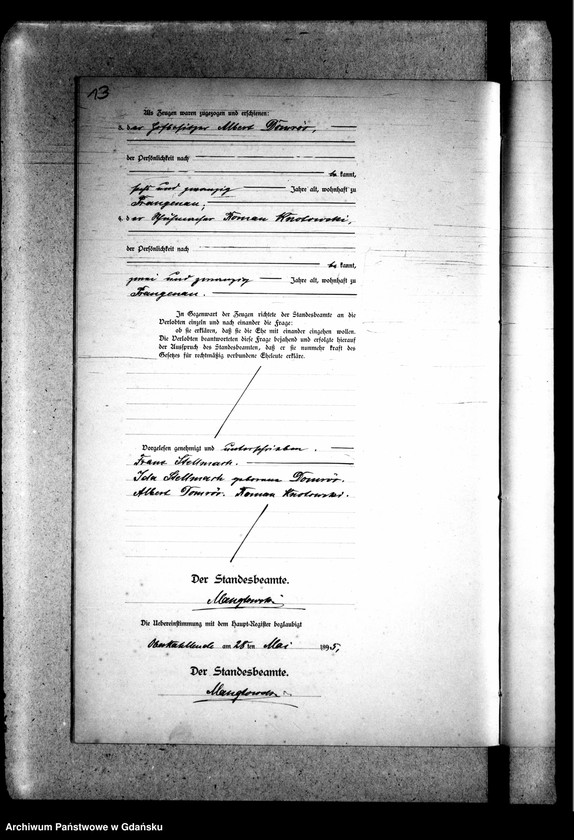 13
Als Zeugen waren zugezogen und erschienen:
3. der Hofbesitzer Albert Domrös,
der Persönlichkeit nach
be kannt,
sechs und zwanzig Jahre alt, wohnhaft zu
Frangenau;
4. der Roman Knolowski,
der Persönlichkeit nach
be kannt,
zwei und zwanzig Jahre alt, wohnhaft zu
Frangenau.
In Gegenwart der Zeugen richtete der Standesbeamte an die
Verlobten einzeln und nach einander die Frage:
ob sie erklären, daß sie die Ehe mit einander eingehen wollen.
Die Verlobten beantworteten diese Frage bejahend und erfolgte hierauf
der Ausspruch des Standesbeamten, daß er sie nunmehr kraft des
Gesetzes für rechtmäßig verbundene Eheleute erkläre.
Vorgelesen genehmigt und unterschrieben.
Franz Stellmach.
Ida Stellmach geborene Domrös.
Albert Domrös. Roman Knolowski.
Der Standesbeamte.
Die Uebereinstimmung mit dem Haupt-Register beglaubigt
am 28 ten Mai 1895,
Der Standesbeamte.
Archiwum Państwowe w Gdańsku